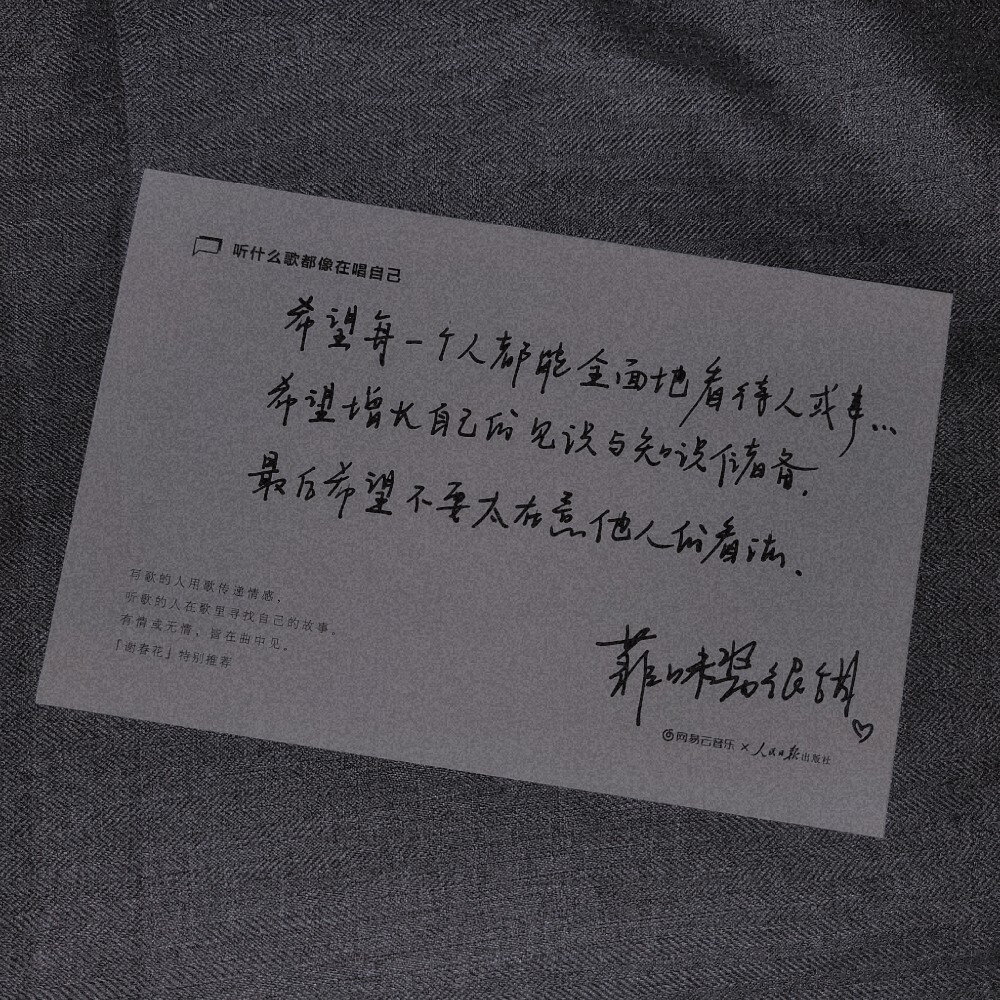 听什么歌都像在唱自己
希望每一个人都能全面地看待人或事...
希望增长自己的见识与知识储备.
最后希望不要太在意他人的看法.
写歌的人用歌传递情感，
听歌的人在歌里寻找自己的故事。
有情或无情，皆在曲中见。
「谢春花」特别推荐
菲味酱很甜
网易云音乐 × 人民日报出版社